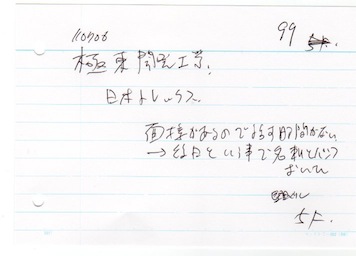 110706
99
極東開発工業
日本トレックス
面接があるので話す時間がない
→後日という事で名刺とパンフ
おいてく
5F.